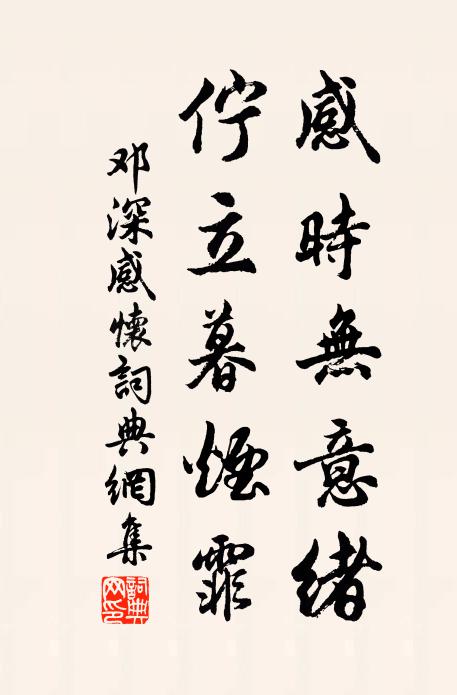 感時無意緒
佇立暮煙霏
邓深感懷詞典網集
詞典網印